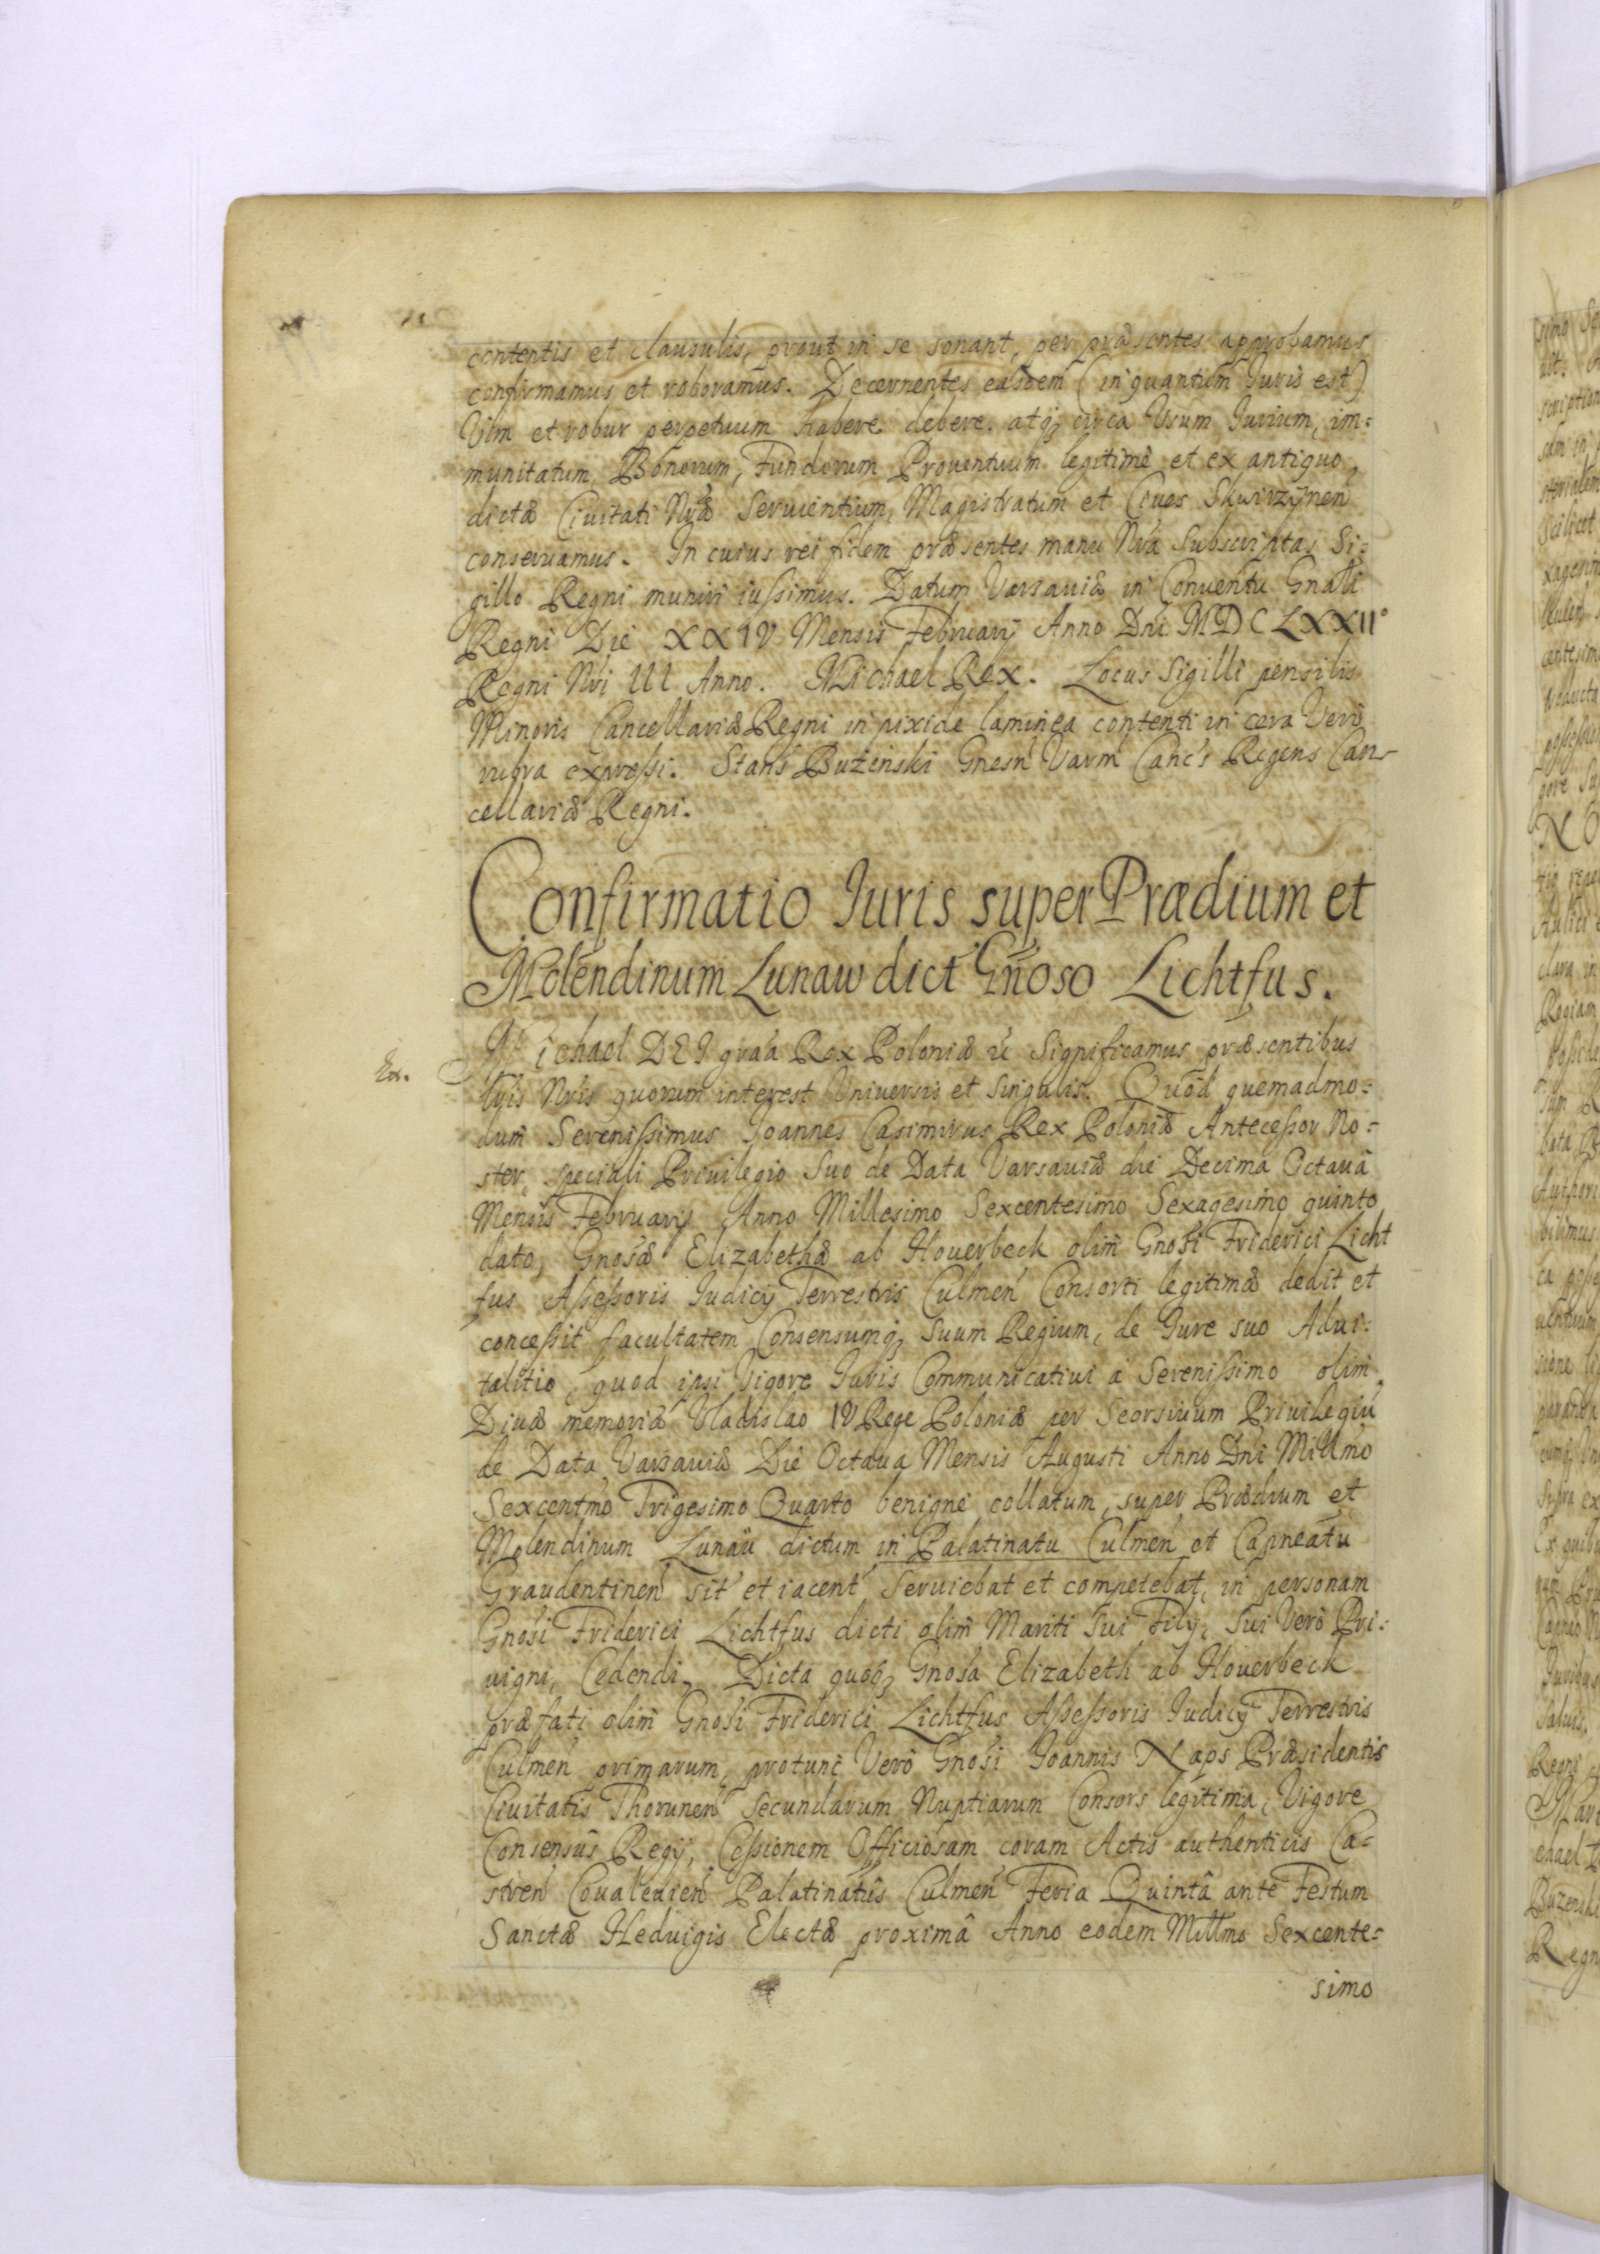 contentis et clausulis, prout in se sonant, per præsentes approbamus
confirmamus et roboramus. Decernentes easdem (in quantum Juris est)
Vim et robur perpetuum habere debere. atq; circa Usum Jurium, im=
munitatum, Bonorum, Fundorum Proventuum legitimè et ex antiquo
dictæ Civitati Nræ Servientium, Magistratum et Cives Skwirzÿnen
conservamus. In cuius rei fidem præsentes manu Nra Subscriptas Si=
gillo Regni muniri iussimus. Datum Varsaviæ in Conventu Gnali
Regni Die XXIV Mensis Februarij Anno Dni MDCLXXII°
Regni Nri III Anno. Michael Rex. Locus Sigilli pensilis
Minoris Cancellariæ Regni in pixide laminea contenti in cera Verò
rubra expressi. Stans Bużenski Gnesn Varm Canc's Regens Can=
cellariæ Regni.
Confirmatio Juris super Prædium et
Molendinum Lunaw dict Gnoso Lichtfus.
Michael DEI graa Rex Poloniæ etc Significamus præsentibus
lris Nris quorum interest Universis et Singulis. Quod quemadmo=
dum Serenissimus Joannes Casimirus Rex Poloniæ Antecessor No=
ster, speciali Privilegio Suo de Data Varsaviæ die Decima Octavâ
Mensis Februarij Anno Millesimo Sexcentesimo Sexagesimo quinto
dato, Gnosæ Elizabethæ ab Hoverbeck olim Gnosi Friderici Licht
fus Assessoris Judicÿ Terrestris Culmen Consorti legitimæ dedit et
concessit facultatem Consensumq; Suum Regium, de Jure suo Advi=
talitio, quod ipsi Vigore Juris Communicativi á Serenissimo olim
Divæ memoriæ Vladislao IV Rege Poloniæ per Seorsivum Privilegiu
de Data Varsaviæ Die Octava Mensis Augusti Anno Dni Millmo
Sexcentmo Trigesimo Quarto benignè collatum, super Prædium et
Molendinum Lunau dictum in Palatinatu Culmen et Capneatu
Graudentinen sit et iacent Serviebat et competebat, in personam
Gnosi Friderici Lichtfus dicti olim Mariti Sui Filÿ, Sui Verò Pri=
vigni, Cedendi. Dicta quoq; Gnosa Elizabeth ab Hoverbeck
præfati olim Gnosi Friderici Lichtfus Assessoris Judicÿ Terrestris
Culmen primarum, protunc Verò Gnosi Joannis Naps Præsidentis
Civitatis Thorunen Secundarum Nuptiarum Consors legitima, Vigore
Consensûs Regÿ, Cessionem Officiosam coram Actis authenticis Ca=
stren Covalevien Palatinatûs Culmen Feria Quintâ ante Festum
Sanctæ Hedvigis Electæ proximâ Anno eodem Millmo Sexcente=
simo